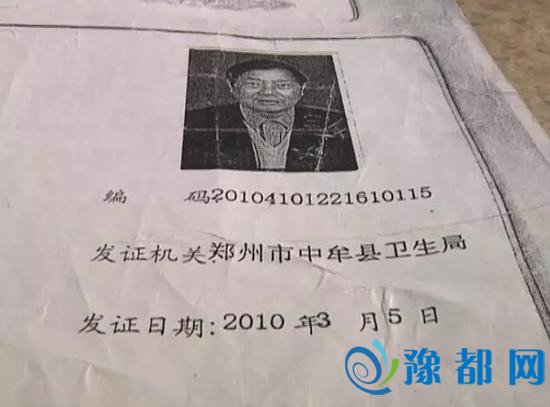 编 码:20104101221610115
发证机关:郑州市中牟县卫生局
发证日期:2010 年3 月5 日
豫都网